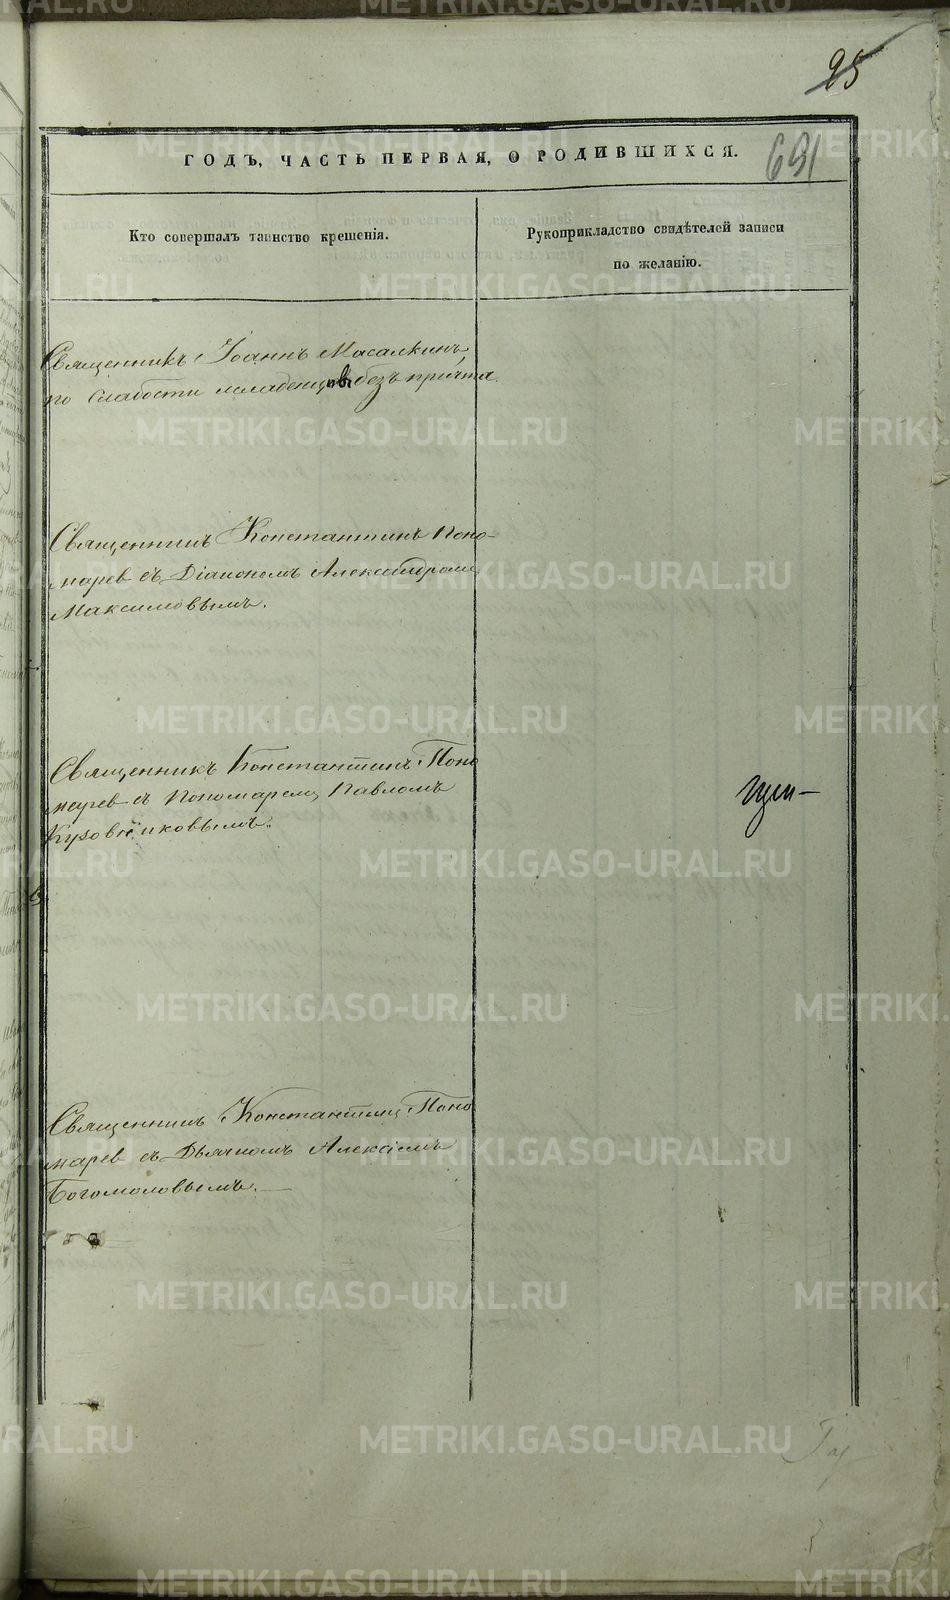 25
ГОДЪ, ЧАСТЬ ПЕРВАЯ, О РОДИВШИХСЯ.
691
Кто совершалъ таинство крещенія.
Рукоприкладство свидѣтелей записи
по желанію.
Священникъ Іоаннъ Масалкинъ,
по слабости младенцовъ безъ причта.
Священникъ Константинъ Поно-
марев съ Діакономъ Александромъ
Максимовымъ.
Священникъ Константинъ Поно
марев съ Пономаремъ Павломъ
Кузовниковымъ.
Священникъ Константинъ Поно
марев съ Дьячкомъ Алексіемъ
Богомоловымъ.
METRIKI.GASO-URAL.RU